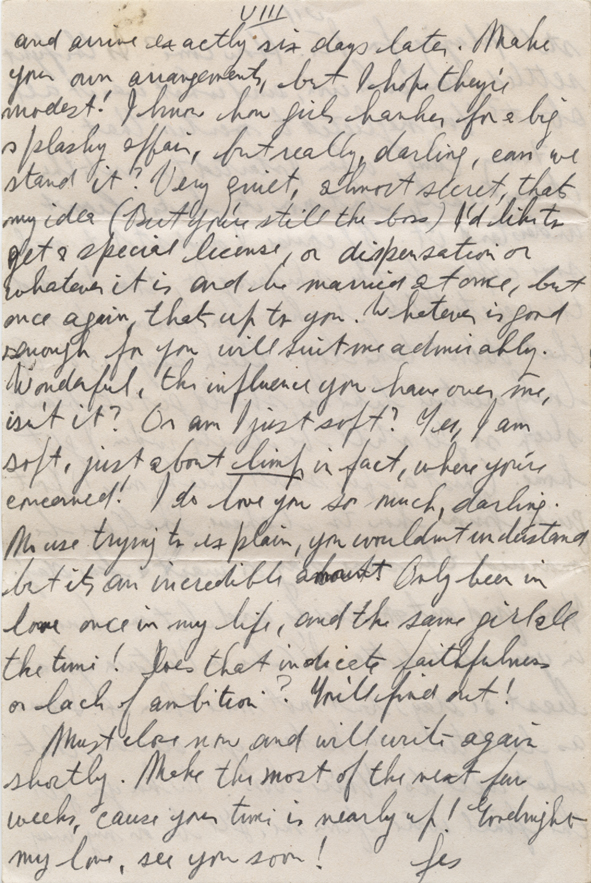 VIII
and arrive exactly six days later. Make
your own arrangements, but I hope they're
modest! I know how girls hanker for a big
splashy affair, but really, darling, can we
stand it? Very quiet, almost secret, that's
my idea (But you're still the boss) I'd like to
get a special license, or dispensation or
whatever it is and be married at once, but
once again, that's up to you. Whatever is good
enough for you will suit me admirably.
Wonderful, the influence you have over me,
isn't it? Or am I just soft? Yes, I am
soft, just about limp in fact, where you're
concerned! I do love you so much, darling.
No use trying to explain, you wouldn't understand
but it's an incredible amount Only been in
love once in my life, and the same girl all
the time! Does that indicate faithfulness
or lack of ambition? You'll find out!
Must close now and will write again
shortly. Make the most of the next few
weeks, cause your time is nearly up! Goodnight
my love, see you soon!